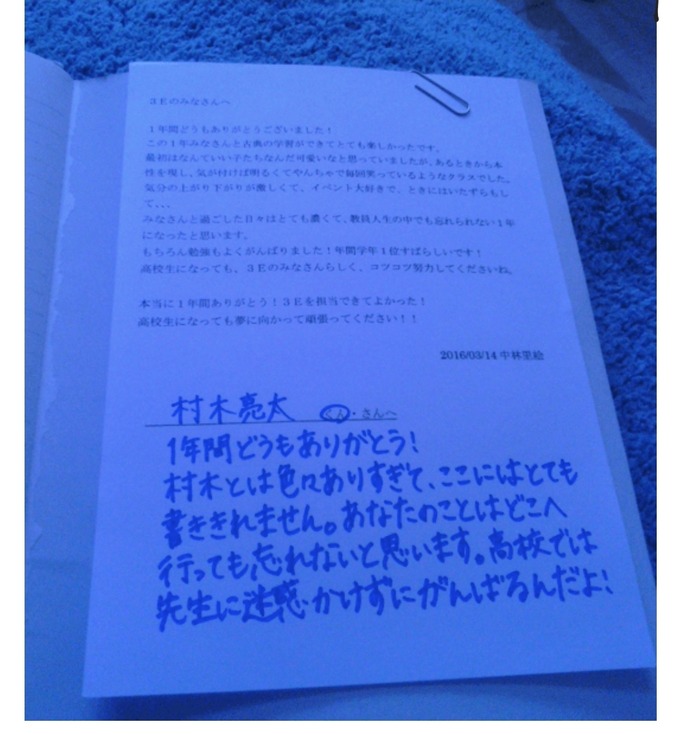 3Eのみなさんへ
1年間どうもありがとうございました!
この1年みなさんと古典の学習ができてとても楽しかったです。
最初はなんていい子たちなんだ可愛いなと思っていましたが、あるときから本
性を現し、気が付けば明るくてやんちゃで毎回笑っているようなクラスでした。
気分の上がり下がりが激しくて、イベント大好きで、ときにはいたずらもし
て、、、
みなさんと過ごした日々はとても濃くて、教員人生の中でも忘れられない1年
になったと思います。
もちろん勉強もよくがんばりました!年間学年1位すばらしいです!
高校生になっても、3Eのみなさんらしく、コツコツ努力してくださいね。
本当に1年間ありがとう!3Eを担当できてよかった!
高校生になっても夢に向かって頑張ってください!!
2016/03/14 中林里絵
村木亮太 くん・さんへ
1年間どうもありがとう!
村木とは色々ありすぎて、ここにはとても
書ききれません。あなたのことはどこへ
行っても忘れないと思います。高校では
先生に迷惑かけずにがんばるんだよ!